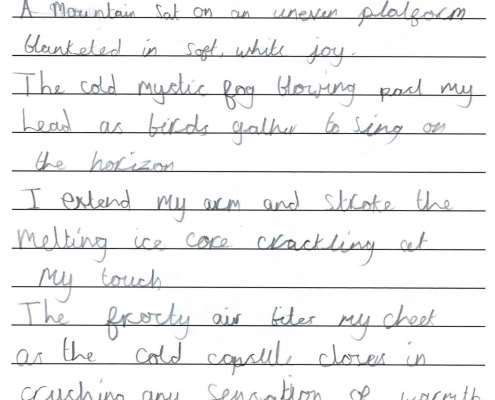 A Mountain Sat on an uneven platform
blanketed in soft, white joy.
The cold mystic fog blowing past my
head as birds gather to sing on
the horizon
I extend my arm and stroke the
Melting ice core crackling at
My touch
The frosty air bites my cheek
as the cold capsule closes in
crushing any sensation of warmth